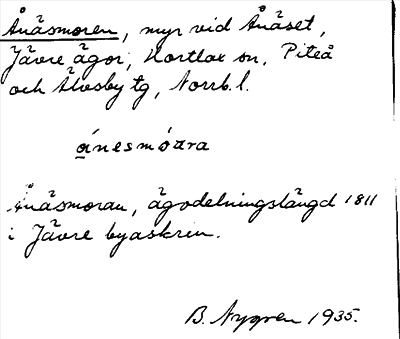 Ånäsmoren, myr vid Ånäset,
Jävre ägor, Hortlax sn, Piteå
och Älvsby tg, Norrb. l.
ánesmóara
Ånäsmoran, ägodelningslängd 1811
i Jävre byaskrin.
B. Nygren 1935.